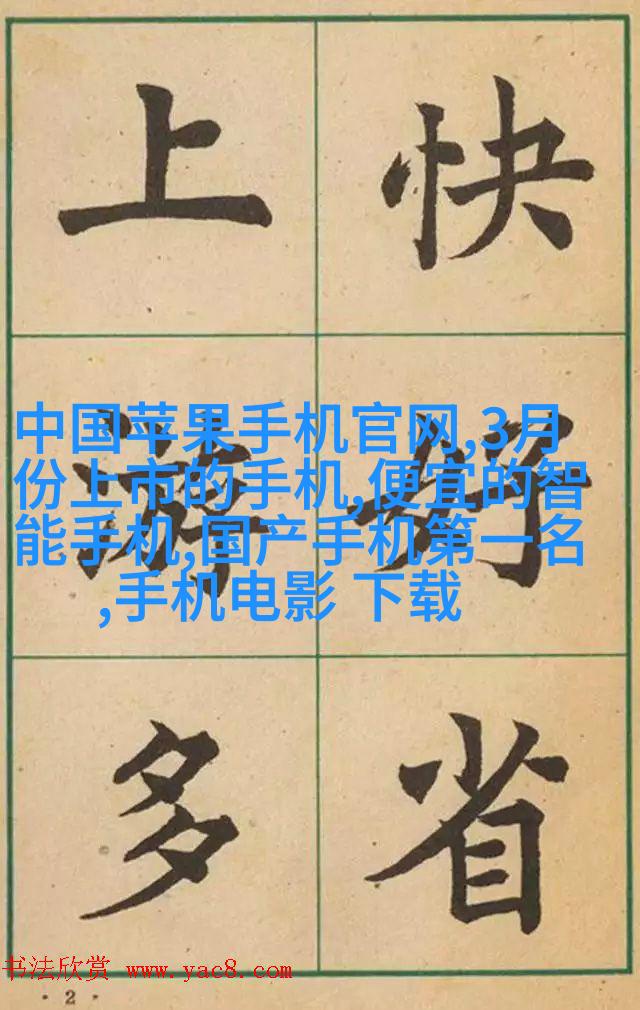 上
游
多
快
好
省
中国苹果手机官网,3月
份上市的手机,便宜的智
能手机,国产手机第一名
,手机电影 下载
书法欣赏 www.yac8.com
·2·